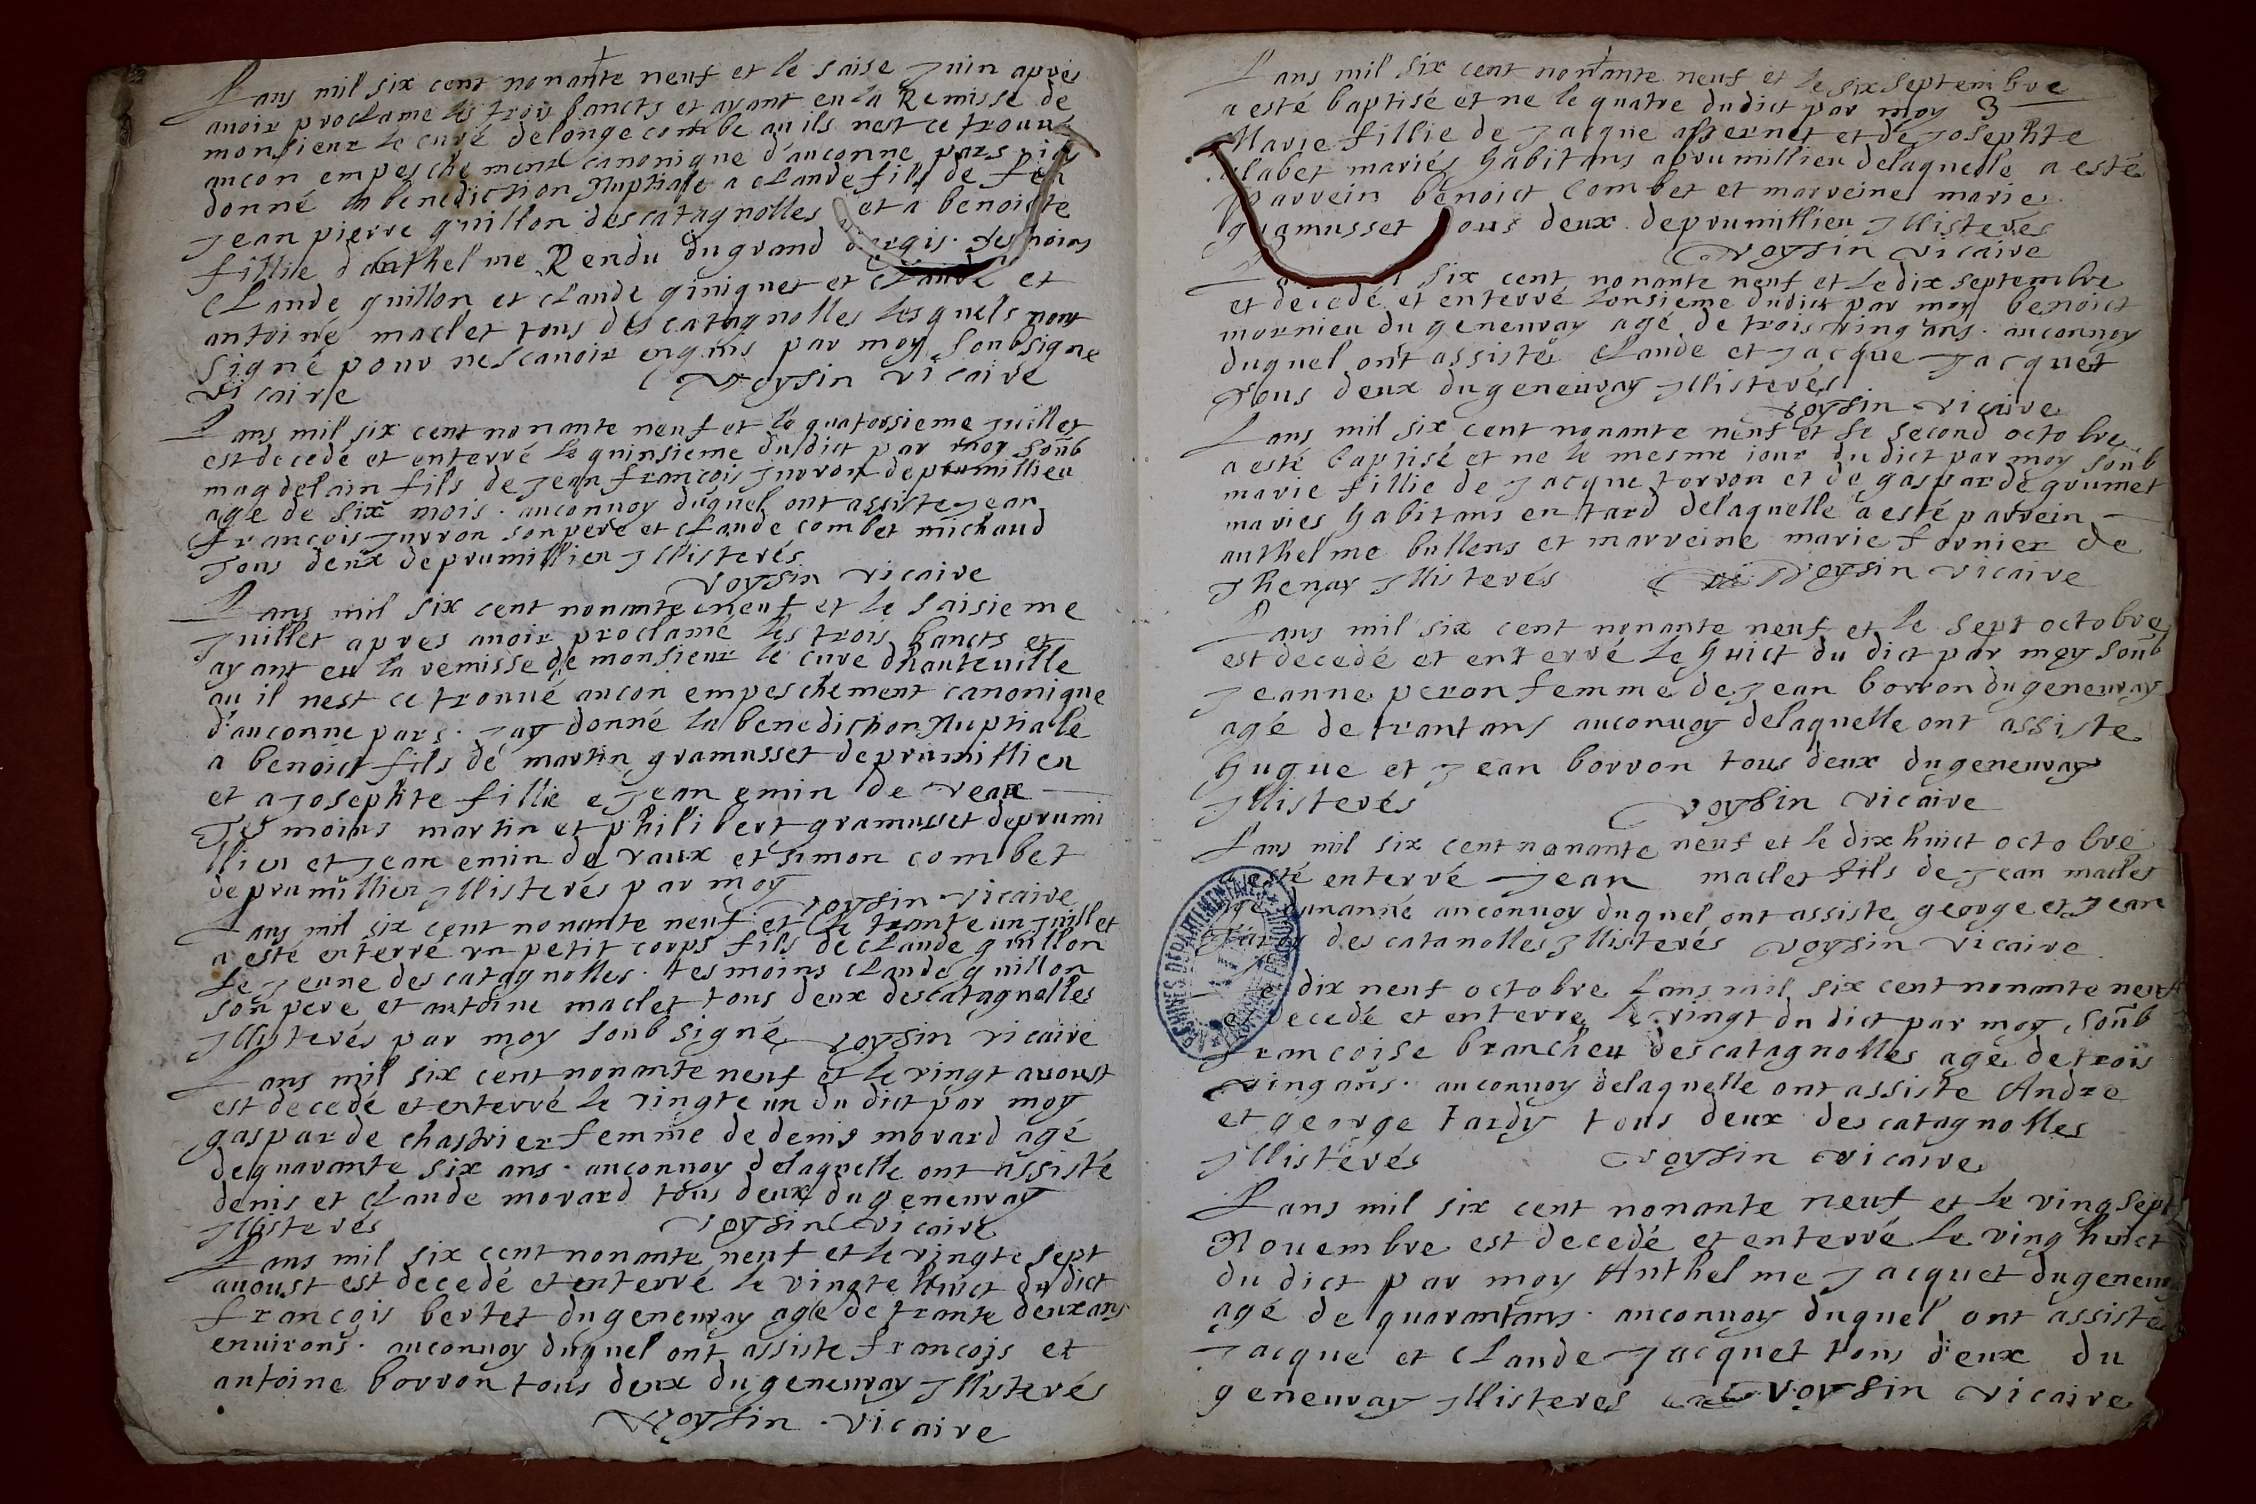 Lans mil six cent nonante neuf et le saise Juin apres
auoir proclame les trois bancts et ayant eu la Remisse de
monsieur le curé delongecombe au ils nest ce trouué
aucon empeschement canonique d'auconne pars iay
donné la benediction Nuptiale a claude fils de feu
Jean pierre guillon des catagnolles et a benoiste
fillie d'anthelme Rendu du grand tesmoins
claude guillon et claude giniquet et claude et
antoine maclet tous des catagnolles lesquels nont
signé pour nescauoir enquis par moy soubsigne
vicaire Voysin vicaire
Lans mil six cent nonante neuf et le quatorsieme Juillet
est decedé et enterré le quinsieme du dict par moy soub
magdelain fils de Jean françois Jurron deprumillieu
agé de six mois. auconuoy duquel ont assiste Jean
françois Jurron son pere et claude combet michaud
Tous deux deprumillieu Jllisterés
Voysin vicaire
Lans mil six cent nonante neuf et le saisieme
Juillet apres auoir proclamé les trois bancts et
ayant eu la remisse de monsieur le cure dhauteuille
au il nest ce trouué aucon empeschement canonique
d'auconne pars. Jay donné la benediction Nuptialle
a benoict fils dé martin gramusset deprumillieu
et a Josephte fillie e Jean emin de veaux
Tesmoins martin et philibert gramusset deprumi
llieu et Jean emin de vaux et simon combet
deprumillieu Jllisterés par moy
Voysin vicaire
Lans mil six cent nonante neuf et le trante un Juillet
a esté enterré vn petit corps fils de claude guillon
le Jeune des catagnolles. tesmoins claude guillon
son pere et antoine maclet tous deux descatagnolles
Jllisterés par moy soubsigné Voysin vicaire
Lans mil six cent nonante neuf et le vingt auoust
est decedé et enterré le vingte un du dict par moy
gasparde chastrier femme de denis morard agé
dequarante six ans. auconuoy delaquelle ont assisté
denis et claude morard tous deux dugeneuray
Jllisterés Voysin vicaire
Lans mil six cent nonante neuf et le vingte sept
auoust est decedé et enterré le vingte huict du dict
françois bertet dugeneuray agé de trante deux ans
enuirons. auconuoy duquel ont assiste francois et
antoine borron tous deux dugeneuray Jllisterés
Voysin vicaire
Lans mil six cent nonante neuf et le six septembre
a esté baptisé et ne le quatre dudict par moy
Marie fillie de Jacque et dé Josephte
clabet mariés habitans aprumillieu delaquelle a esté
parrein benoict Combet et marreine marie
gramusset ous deux deprumillieu Jllisterés
Voysin vicaire
six cent nonante neuf et le dix septembre
et decedé et enterré lonsieme dudict par moy benoict
mornieu dugeneuray agé de trois ving ans. auconuoy
duquel ont assisté claude et Jacque Jacquet
Tous deux dugeneuray Jllisterés
Voysin vicaire
Lans mil six cent nonante neuf et le second octobre
a esté baptisé et ne le mesme iour du dict par moy soub
marie fillie de Jacque torron et de gasparde grumet
maries habitans en tard delaquelle a esté parrein
anthelme bullens et marreine marie fornier de
Thenay Jllisterés Voysin vicaire
Lans mil six cent nonante neuf et le sept octobre
est decedé et enterré le huict du dict par moy soub
Jeanne peron femme de Jean borron dugeneuray
agé de trantans auconuoy delaquelle ont assiste
hugue et Jean borron tous deux dugeneuray
Jllisterés Voysin vicaire
Lans mil six cent nonante neuf et le dix huict octobre
a esté enterré Jean maclet fils de Jean maclet
agé dunanné auconuoy duquel ont assiste george et Jean
Tardy des catanolles Jllisterés Voysin vicaire
Le dix neuf octobre Lans mil six cent nonante neuf
decedé et enterré le vingt du dict par moy soub
francoise brancheu descatagnolles agé de trois
vingans. auconuoy delaquelle ont assiste Andre
et george tardy tous deux descatagnolles
Jllistérés Voysin vicaire
Lans mil six cent nonante neuf et le ving sept
Nouembre est decedé et enterré le ving huict
du dict par moy Anthelme Jacquet dugeneuray
agé de quarantans. auconuoy duquel ont assisté
Jacque et claude Jacquet tous deux du
geneuray Jllisterés Voysin vicaire
ARCHIVES DEPARTEMENTALES